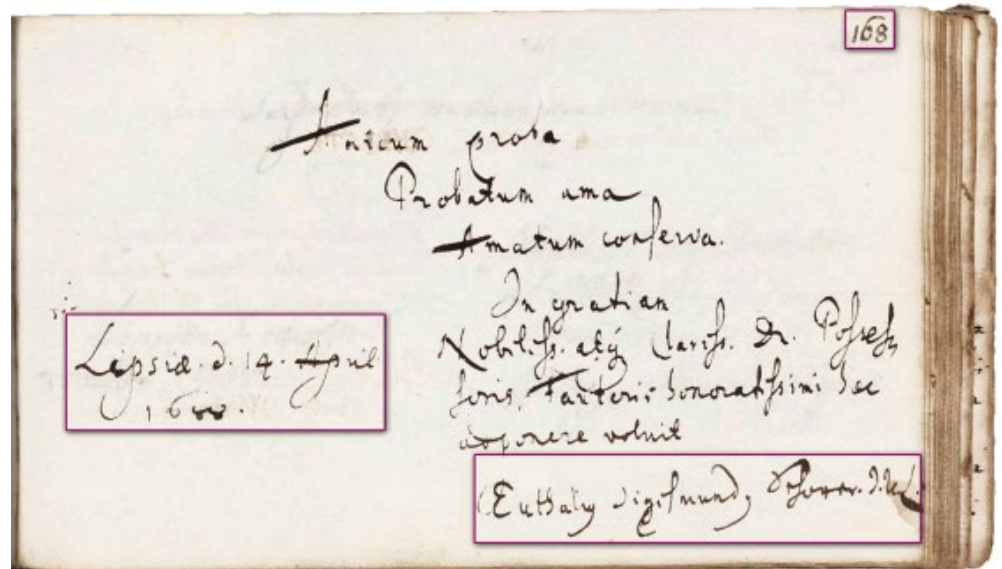 168
Amicum proba
Probatum ama
Amatum conserva.
In gratiam
Nobiliss. atq Clariss. Dn. Possess
soris, Fautoris honoratissimi hec
apponere voluit
Lipsiæ d. 14. April
Euthaliq Sigismund